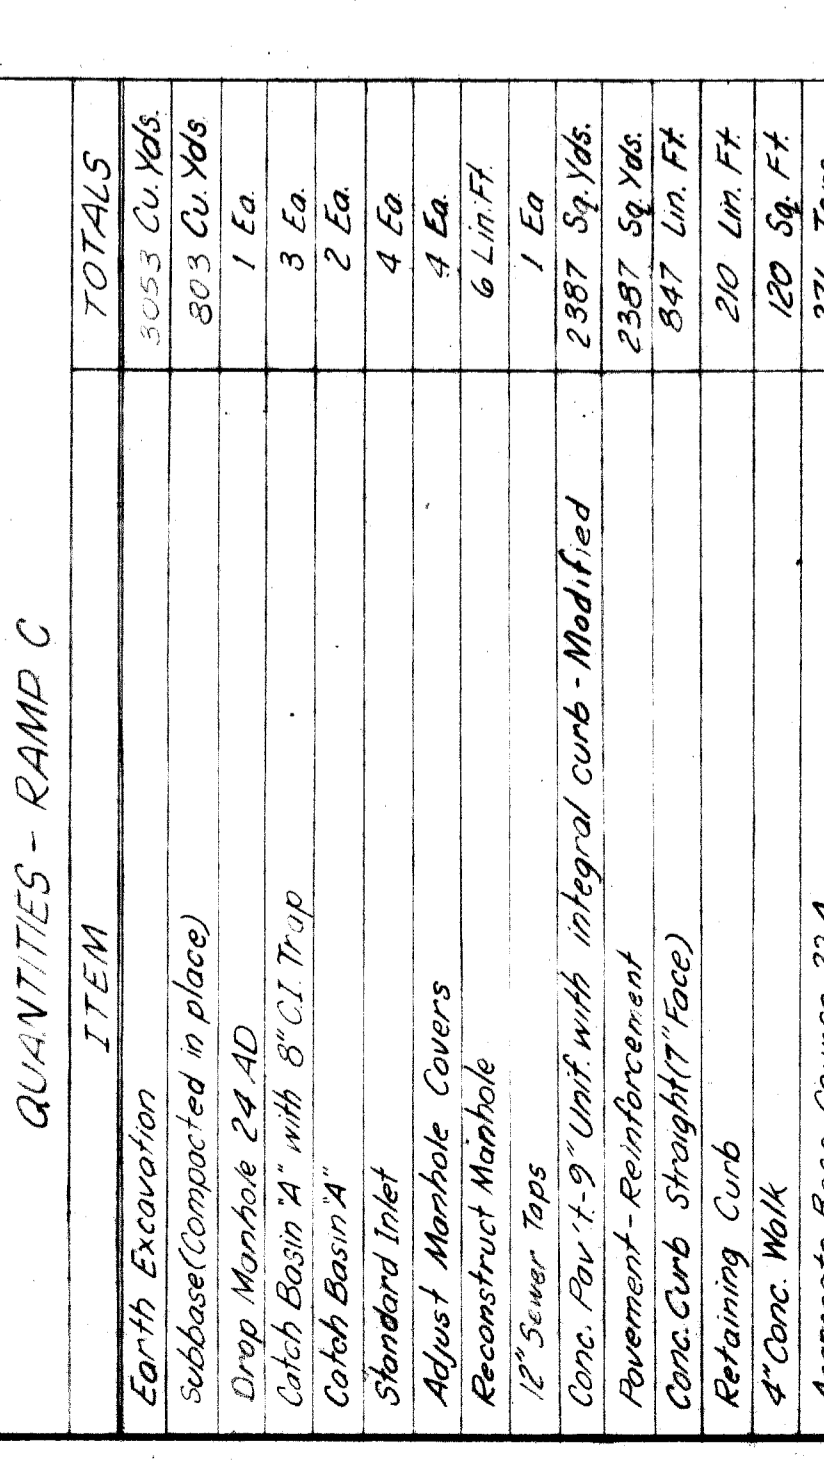 QUANTITIES - RAMP C
ITEM TOTALS
Earth Excavation 3053 Cu. Yds.
Subbase (Compacted in place) 803 Cu. Yds.
Drop Manhole 24 AD 1 Ea.
Catch Basin "A" with 8" C.I. Trap 3 Ea.
Catch Basin "A" 2 Ea.
Standard Inlet 4 Ea.
Adjust Manhole Covers 4 Ea.
Reconstruct Manhole 6 Lin. Ft.
12" Sewer Taps 1 Ea
Conc. Pav't-9" Unif. with integral curb - Modified 2387 Sq. Yds.
Pavement-Reinforcement 2387 Sq. Yds.
Conc. Curb Straight (7" Face) 847 Lin. Ft.
Retaining Curb 210 Lin. Ft.
4" Conc. Walk 120 Sq. Ft.